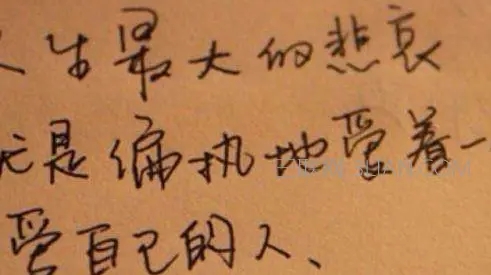 人生最大的悲哀
是偏执地爱着一
爱自己的人、